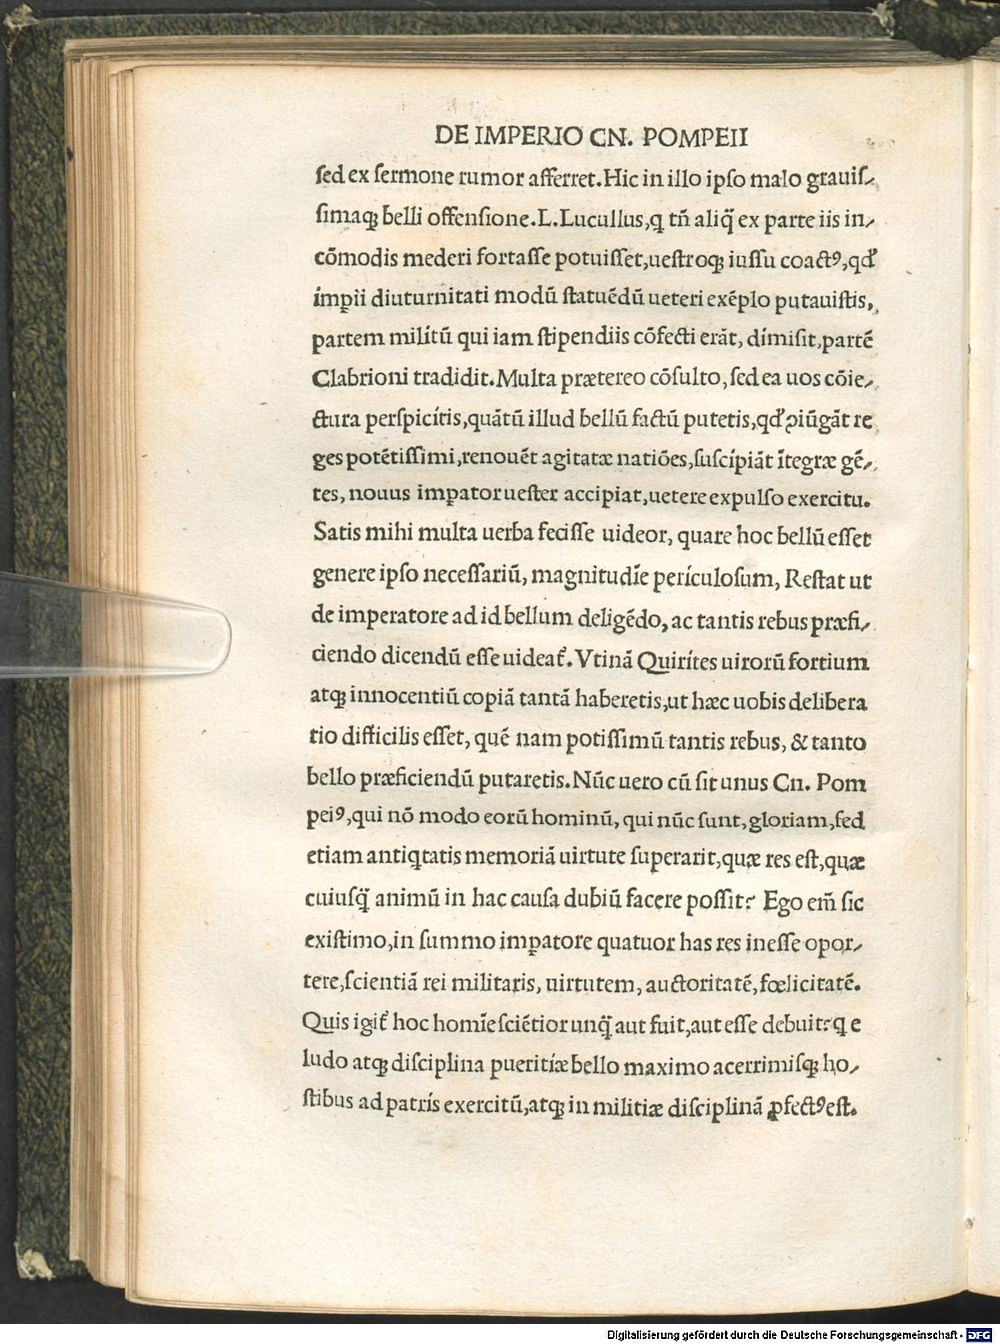 DE IMPERIO CN. POMPEII
ſed ex ſermone rumor afferret. Hic in illo ipſo malo grauiſ⸗
ſimaqꝫ belli offenſione. L. Lucullus, q tñ aliq̃ ex parte iis in⸗
cõmodis mederi fortaſſe potuiſſet, ueſtroqꝫ iuſſu coactꝰ, qđ
imꝑii diuturnitati modũ ſtatuẽdũ ueteri exẽplo putauiſtis,
partem militũ qui iam ſtipendiis cõfecti erãt, dimiſit, partẽ
Clabrioni tradidit. Multa prætereo cõſulto, ſed ea uos cõie⸗
ctura perſpicitis, quãtũ illud bellũ factũ putetis, qđ ꝯiũgãt re
ges potẽtiſſimi, renouẽt agitatæ natiões, ſuſcipiãt ĩtegræ gẽ⸗
tes, nouus imꝑator ueſter accipiat, uetere expulſo exercitu.
Satis mihi multa uerba feciſſe uideor, quare hoc bellũ eſſet
genere ipſo neceſſariũ, magnitudĩe periculoſum, Reſtat ut
de imperatore ad id bellum deligẽdo, ac tantis rebus præfi⸗
ciendo dicendũ eſſe uideat᷑. Vtinã Quirites uirorũ fortium
atqꝫ innocentiũ copiã tantã haberetis, ut hæc uobis delibera
tio difficilis eſſet, quẽ nam potiſſimũ tantis rebus, & tanto
bello præficiendũ putaretis. Nũc uero cũ ſit unus Cn. Pom
peiꝰ, qui nõ modo eorũ hominũ, qui nũc ſunt, gloriam, ſed
etiam antiqtatis memoriã uirtute ſuperarit, quæ res eſt, quæ
cuiuſq̃ animũ in hac cauſa dubiũ facere poſſit? Ego em̃ ſic
exiſtimo, in ſummo imꝑatore quatuor has res ineſſe opor⸗
tere, ſcientiã rei militaris, uirtutem, auctoritatẽ, fœlicitatẽ.
Quis igit᷑ hoc homĩe ſciẽtior unq̃ aut fuit, aut eſſe debuit? q e
ludo atqꝫ diſciplina pueritiæ bello maximo acerrimiſqꝫ ho⸗
ſtibus ad patris exercitũ, atqꝫ in militiæ diſciplinã ꝓfectꝰ eſt.
Digitalisierung gefördert durch die Deutsche Forschungsgemeinschaft - DFG